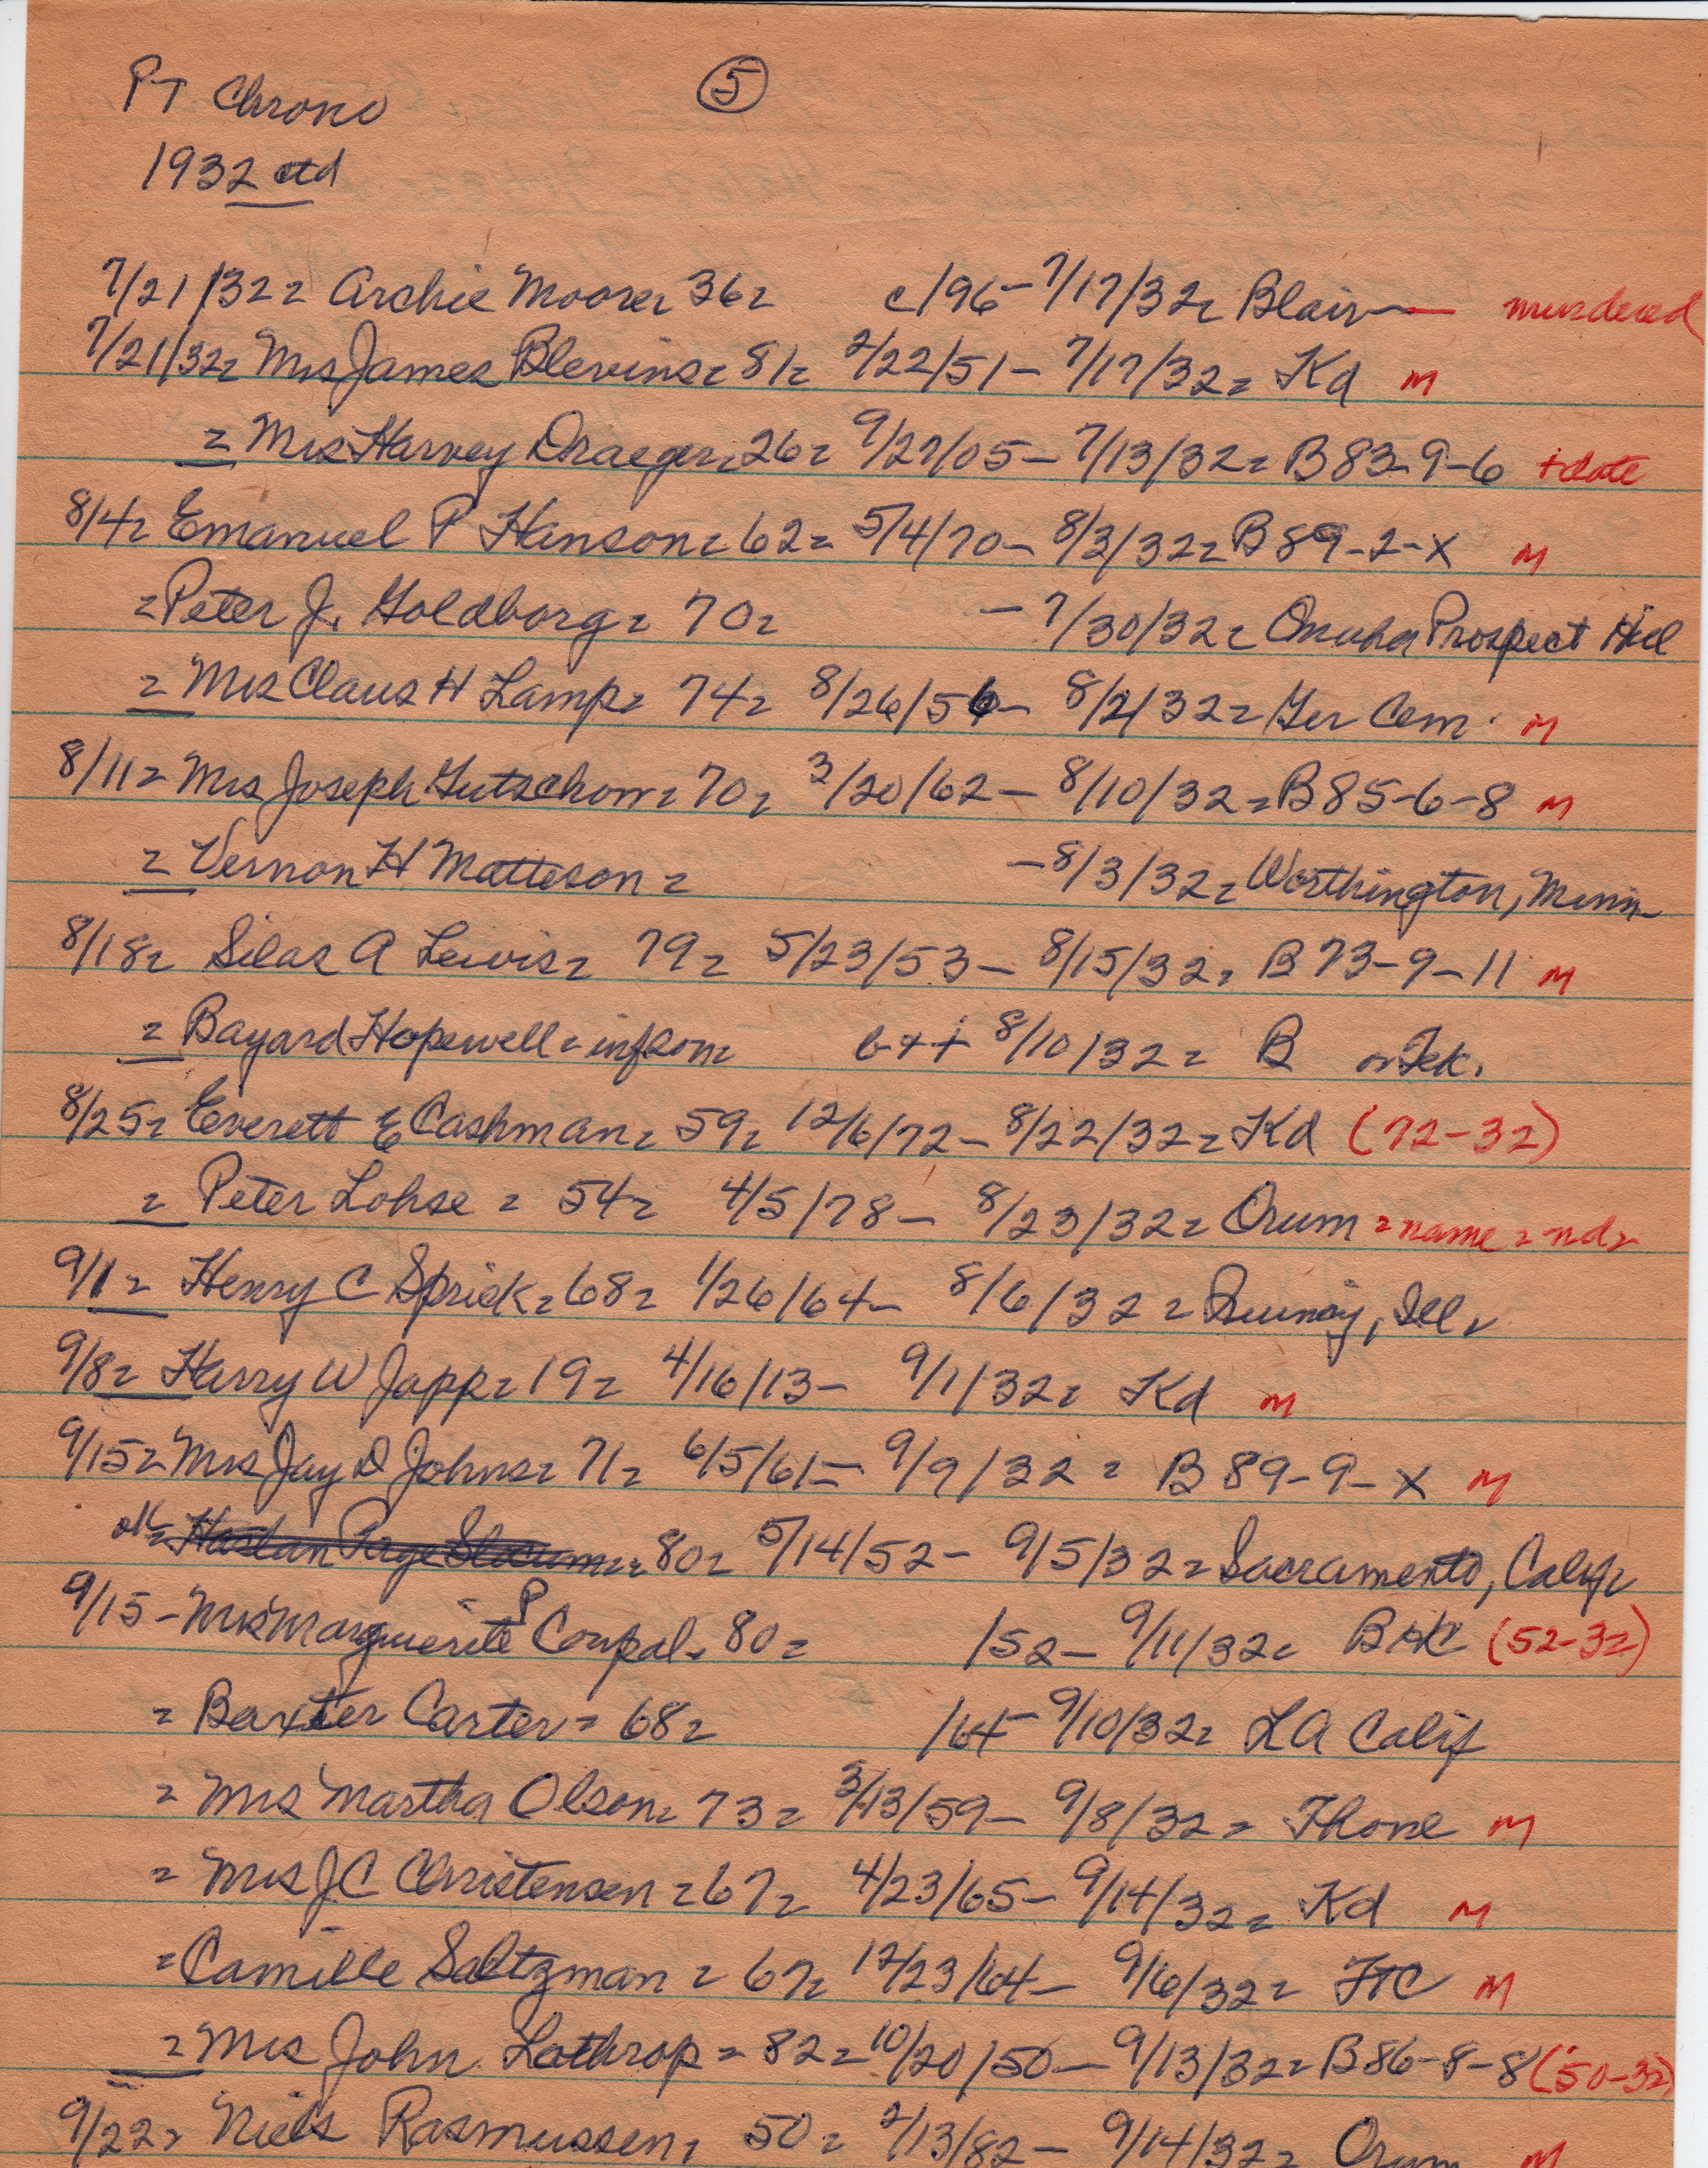 PT Chrono ⑤
1932 ctd
7/21/32= Archie Moore= 36= c/96- 7/17/32= Blair — murdered
7/21/32= Mrs James Blevins= 81= 2/22/51- 7/17/32= Kd M
= Mrs Harvey Draeger= 26= 9/27/05- 7/13/32= B 83-9-6 +date
8/4= Emanuel P Hanson= 62= 5/4/70- 8/3/32= B 89-2-X M
= Peter J. Goldborg= 70= - 7/30/32= Omaha Prospect Hill
= Mrs Claus H Lamp= 74= 8/26/56- 8/2/32= Ger Cem. M
8/11= Mrs Joseph Gutschow= 70= 3/20/62- 8/10/32= B 85-6-8 M
= Vernon H Matteson= -8/3/32= Worthington, Minn-
8/18= Silas A Lewis= 79= 5/23/53- 8/15/32= B 73-9-11 M
= Bayard Hopewell= infson= b++ 8/10/32= B or Tek.
8/25= Everett E Cashman= 59= 12/6/72- 8/22/32= Kd (72-32)
= Peter Lohse= 54= 4/5/78- 8/23/32= Orum =name=nd=
9/1= Henry C Sprick= 68= 1/26/64- 8/6/32= , Ill=
9/8= Harry W Japp= 19= 4/16/13- 9/1/32= Kd M
9/15= Mrs Jay D Johns= 71= 6/5/61- 9/9/32= B 89-9-X M
Harlan Page Slocum= 80= 5/14/52- 9/5/32= Sacramento, Calif=
9/15- Mrs Marguerite P Coupal= 80= /52- 9/11/32= (52-32)
= Baxter Carter= 68= /64- 9/10/32= LA Calif
= Mrs Martha Olson= 73= 3/13/59- 9/8/32= Fhone M
= Mrs JC Christensen= 67= 4/23/65- 9/14/32= Kd M
= Camille Saltzman= 67= 12/23/64- 9/6/32= FTC M
= Mrs John Lathrop= 82= 10/20/50- 9/13/32= B 86-8-8 (50-32)
9/22= Niels Rasmussen= 50= 2/13/82- 9/14/32= Orum M